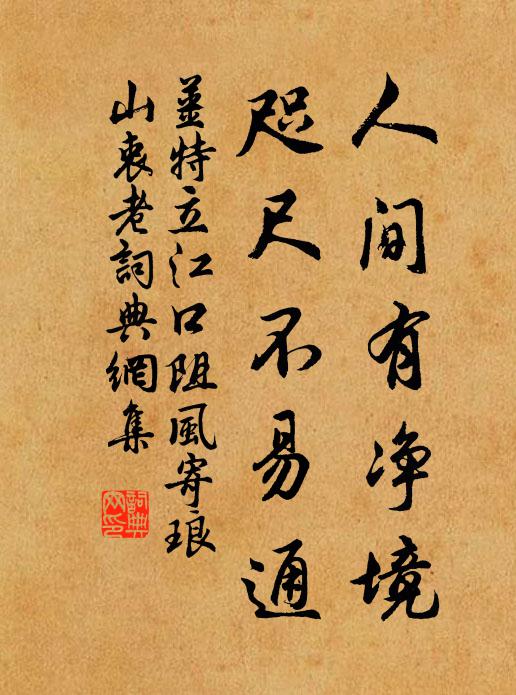 人間有净境
咫尺不易通
姜特立江口阻風寄琅
山衷老詞典網集
詞典
网印